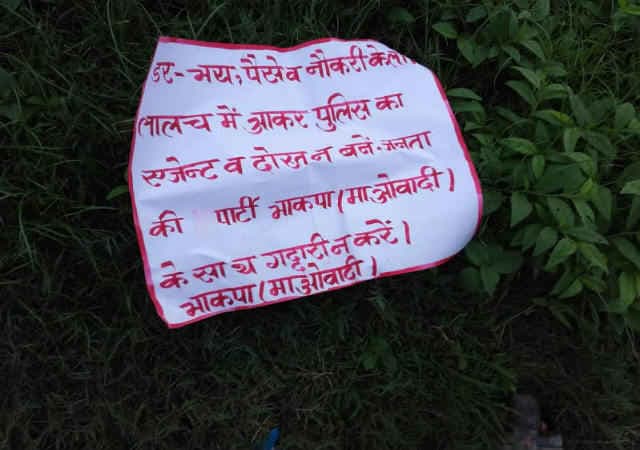 डर-भय, पैसे व नौकरी के लो
लालच में आकर पुलिस का
एजेन्ट व दोस्त न बनें. जनता
की पार्टी भाकपा (माओवादी)
के साथ गद्दारी न करें।
भाकपा (माओवादी)